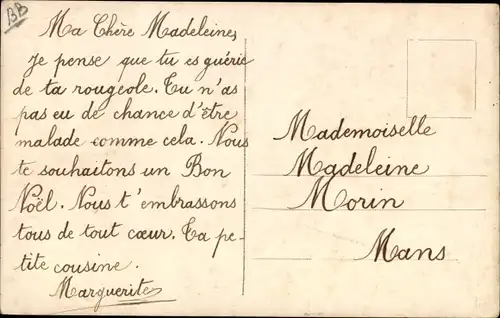 BB
Ma Chère Madeleine,
je pense que tu es guérie
de ta rougeole. Tu n'as
pas eu de chance d'être
malade comme cela. Nous
te souhaitons un Bon
Noël. Nous t'embrassons
tous de tout cœur. Ta pe-
tite cousine.
Marguerite
Mademoiselle
Madeleine
Morin
Mans